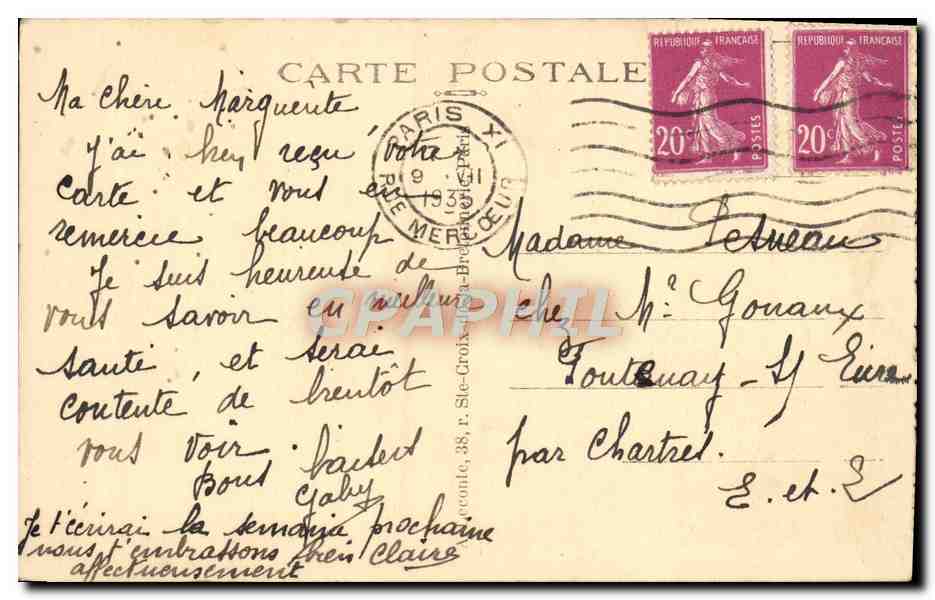 CARTE POSTALE
REPUBLIQUE FRANÇAISE
20c
POSTES
REPUBLIQUE FRANÇAISE
20c
POSTES
PARIS XI
9 VII
193
RUE MERCŒUR
Ma chère Marguerite
j'ai hier reçu votre
carte et vous en
remercie beaucoup
Je suis heureuse de
vous savoir en meilleure
santé, et serai
contente de bientôt
vous voir.
Bons baisers
Gaby
Je t'écrirai la semaine prochaine
nous t'embrassons bien Claire
affectueusement
econte, 38, r. Ste-Croix-de-la-Bretonnerie, Paris
Madame
chez Mr Gouaux
Fontenay - S/ Eure
par Chartres.
E. et. L
CPAPHIL